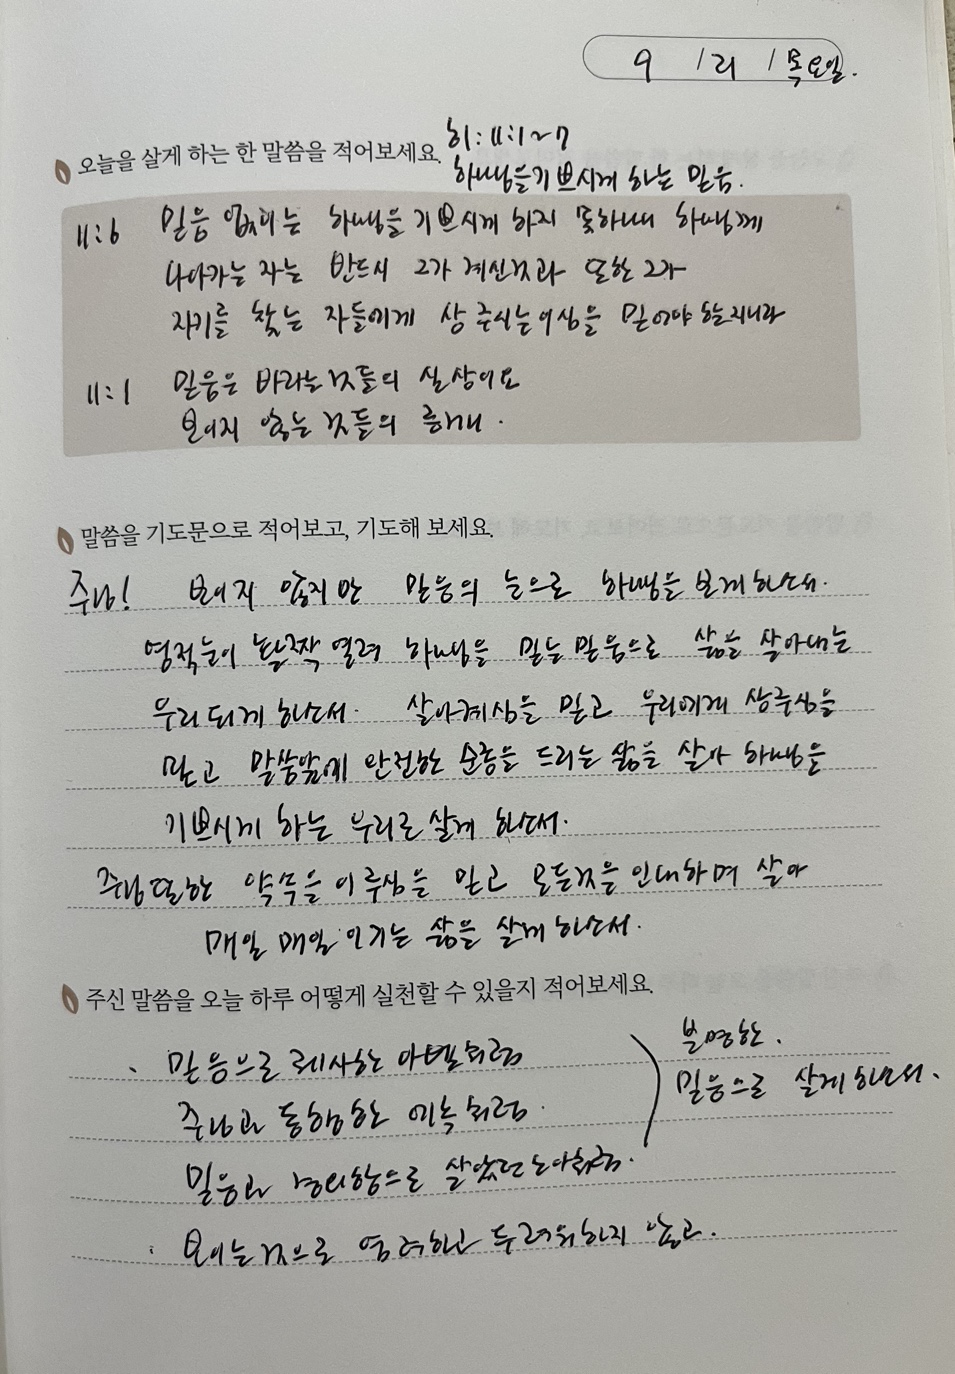 9 / 21 / 목요일.
오늘을 살게 하는 한 말씀을 적어보세요.
히: 11:1~7
하나님을 기쁘시게 하는 믿음.
11:6 믿음 없이는 하나님을 기쁘시게 하지 못하나니 하나님께
나아가는 자는 반드시 그가 계신것과 또한 그가
자기를 찾는 자들에게 상 주시는이심을 믿어야 할지니라
11:1 믿음은 바라는것들의 실상이요
보이지 않는 것들의 증거니.
말씀을 기도문으로 적어보고, 기도해 보세요.
주님! 보이지 않지만 믿음의 눈으로 하나님을 보게하소서.
영적눈이 활짝 열려 하나님을 믿는 믿음으로 삶을 살아내는
우리되게 하소서. 살아계심을 믿고 우리에게 상주심을
믿고 말씀앞에 완전한 순종을 드리는 삶을 살아 하나님을
기쁘시게 하는 우리로 살게 하소서.
주님 또한 약속을 이루심을 믿고 모든것을 인내하며 살아
매일 매일 이기는 삶을 살게 하소서.
주신 말씀을 오늘 하루 어떻게 실천할 수 있을지 적어보세요.
믿음으로 제사한 아벨처럼
주님과 동행한 에녹처럼.
믿음과 경외함으로 살았던 노아처럼.
분명한.
믿음으로 살게하소서.
보이는것으로 염려하고 두려워하지 않고.